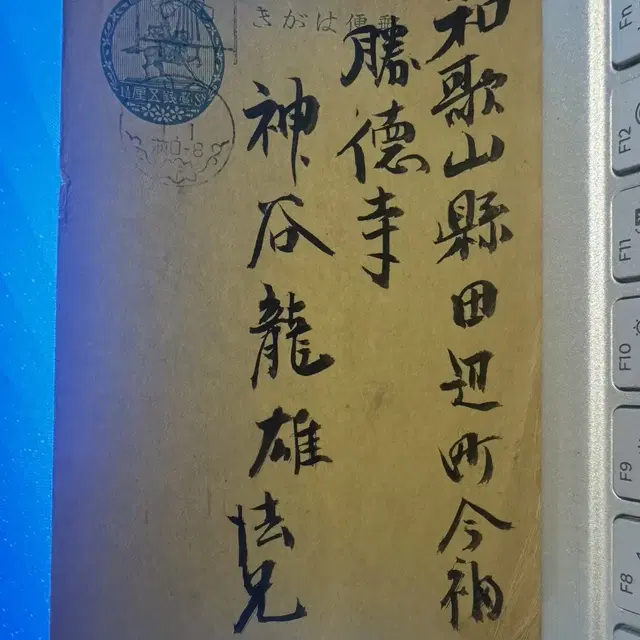 きがは便郵
和歌山縣田辺町今福
勝德寺
神谷龍雄法兄
Fn
F12
F11
F10
F9
F8